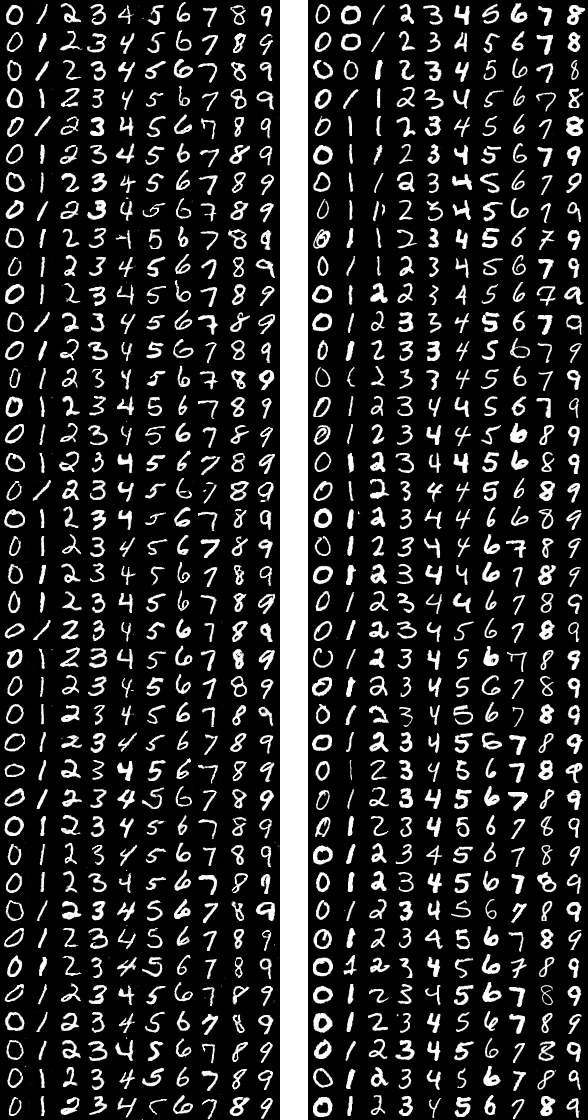 0 1 2 3 4 5 6 7 8 9
0 1 2 3 4 5 6 7 8 9
0 1 2 3 4 5 6 7 8 9
0 1 2 3 4 5 6 7 8 9
0 1 2 3 4 5 6 7 8 9
0 1 2 3 4 5 6 7 8 9
0 1 2 3 4 5 6 7 8 9
0 1 2 3 4 5 6 7 8 9
0 1 2 3 4 5 6 7 8 9
0 1 2 3 4 5 6 7 8 9
0 1 2 3 4 5 6 7 8 9
0 1 2 3 4 5 6 7 8 9
0 1 2 3 4 5 6 7 8 9
0 1 2 3 4 5 6 7 8 9
0 1 2 3 4 5 6 7 8 9
0 1 2 3 4 5 6 7 8 9
0 1 2 3 4 5 6 7 8 9
0 1 2 3 4 5 6 7 8 9
0 1 2 3 4 5 6 7 8 9
0 1 2 3 4 5 6 7 8 9
0 1 2 3 4 5 6 7 8 9
0 1 2 3 4 5 6 7 8 9
0 1 2 3 4 5 6 7 8 9
0 1 2 3 4 5 6 7 8 9
0 1 2 3 4 5 6 7 8 9
0 1 2 3 4 5 6 7 8 9
0 1 2 3 4 5 6 7 8 9
0 1 2 3 4 5 6 7 8 9
0 1 2 3 4 5 6 7 8 9
0 1 2 3 4 5 6 7 8 9
0 1 2 3 4 5 6 7 8 9
0 1 2 3 4 5 6 7 8 9
0 1 2 3 4 5 6 7 8 9
0 1 2 3 4 5 6 7 8 9
0 1 2 3 4 5 6 7 8 9
0 1 2 3 4 5 6 7 8 9
0 1 2 3 4 5 6 7 8 9
0 1 2 3 4 5 6 7 8 9
0 1 2 3 4 5 6 7 8 9
0 1 2 3 4 5 6 7 8 9
0 0 1 2 3 4 5 6 7 8
0 0 1 2 3 4 5 6 7 8
0 0 1 2 3 4 5 6 7 8
0 1 1 2 3 4 5 6 7 8
0 1 1 2 3 4 5 6 7 8
0 1 1 2 3 4 5 6 7 9
0 1 1 2 3 4 5 6 7 9
0 1 1 2 3 4 5 6 7 9
0 1 1 2 3 4 5 6 7 9
0 1 1 2 3 4 5 6 7 9
0 1 2 2 3 4 5 6 7 9
0 1 2 3 3 4 5 6 7 9
0 1 2 3 3 4 5 6 7 9
0 1 2 3 3 4 5 6 7 9
0 1 2 3 4 4 5 6 7 9
0 1 2 3 4 4 5 6 8 9
0 1 2 3 4 4 5 6 8 9
0 1 2 3 4 4 5 6 8 9
0 1 2 3 4 4 6 6 8 9
0 1 2 3 4 4 6 7 8 9
0 1 2 3 4 4 6 7 8 9
0 1 2 3 4 4 6 7 8 9
0 1 2 3 4 5 6 7 8 9
0 1 2 3 4 5 6 7 8 9
0 1 2 3 4 5 6 7 8 9
0 1 2 3 4 5 6 7 8 9
0 1 2 3 4 5 6 7 8 9
0 1 2 3 4 5 6 7 8 9
0 1 2 3 4 5 6 7 8 9
0 1 2 3 4 5 6 7 8 9
0 1 2 3 4 5 6 7 8 9
0 1 2 3 4 5 6 7 8 9
0 1 2 3 4 5 6 7 8 9
0 1 2 3 4 5 6 7 8 9
0 1 2 3 4 5 6 7 8 9
0 1 2 3 4 5 6 7 8 9
0 1 2 3 4 5 6 7 8 9
0 1 2 3 4 5 6 7 8 9
0 1 2 3 4 5 6 7 8 9
0 1 2 3 4 5 6 7 8 9